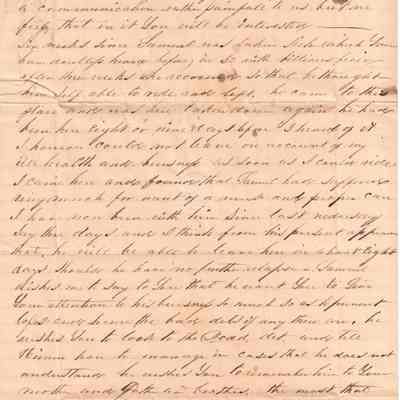 a communication rather painfull to us, but we
feel that in it you will be interested
Six weeks since Samuel was taken Sick (which you
have doubtless heard before, in SC with billious fever
after three weeks he recovered so that he thought
himself able to ride and left, he came to this
place and was here taken down again he had
been here eight or nine days before I heard of it
I however could not leave on account of my
ill health and as soon as I could ride
I came here and found that Saml had suffered
very much for want of a nurse and proper care
I have now been with him since last wednesday
Six days and I think from his present appearance
that he will be able to leave here in about eight
days should he have no further relapse Samuel
wishes me to say to you that he want you to give
your attention to his business so much so as to prevent
loss and secure the bad debts if any there are, he
wishes you to look to the debt, and tell
him how to manage in cases that he does not
understand he wishes you to remember him to your
mother and brother, the most that